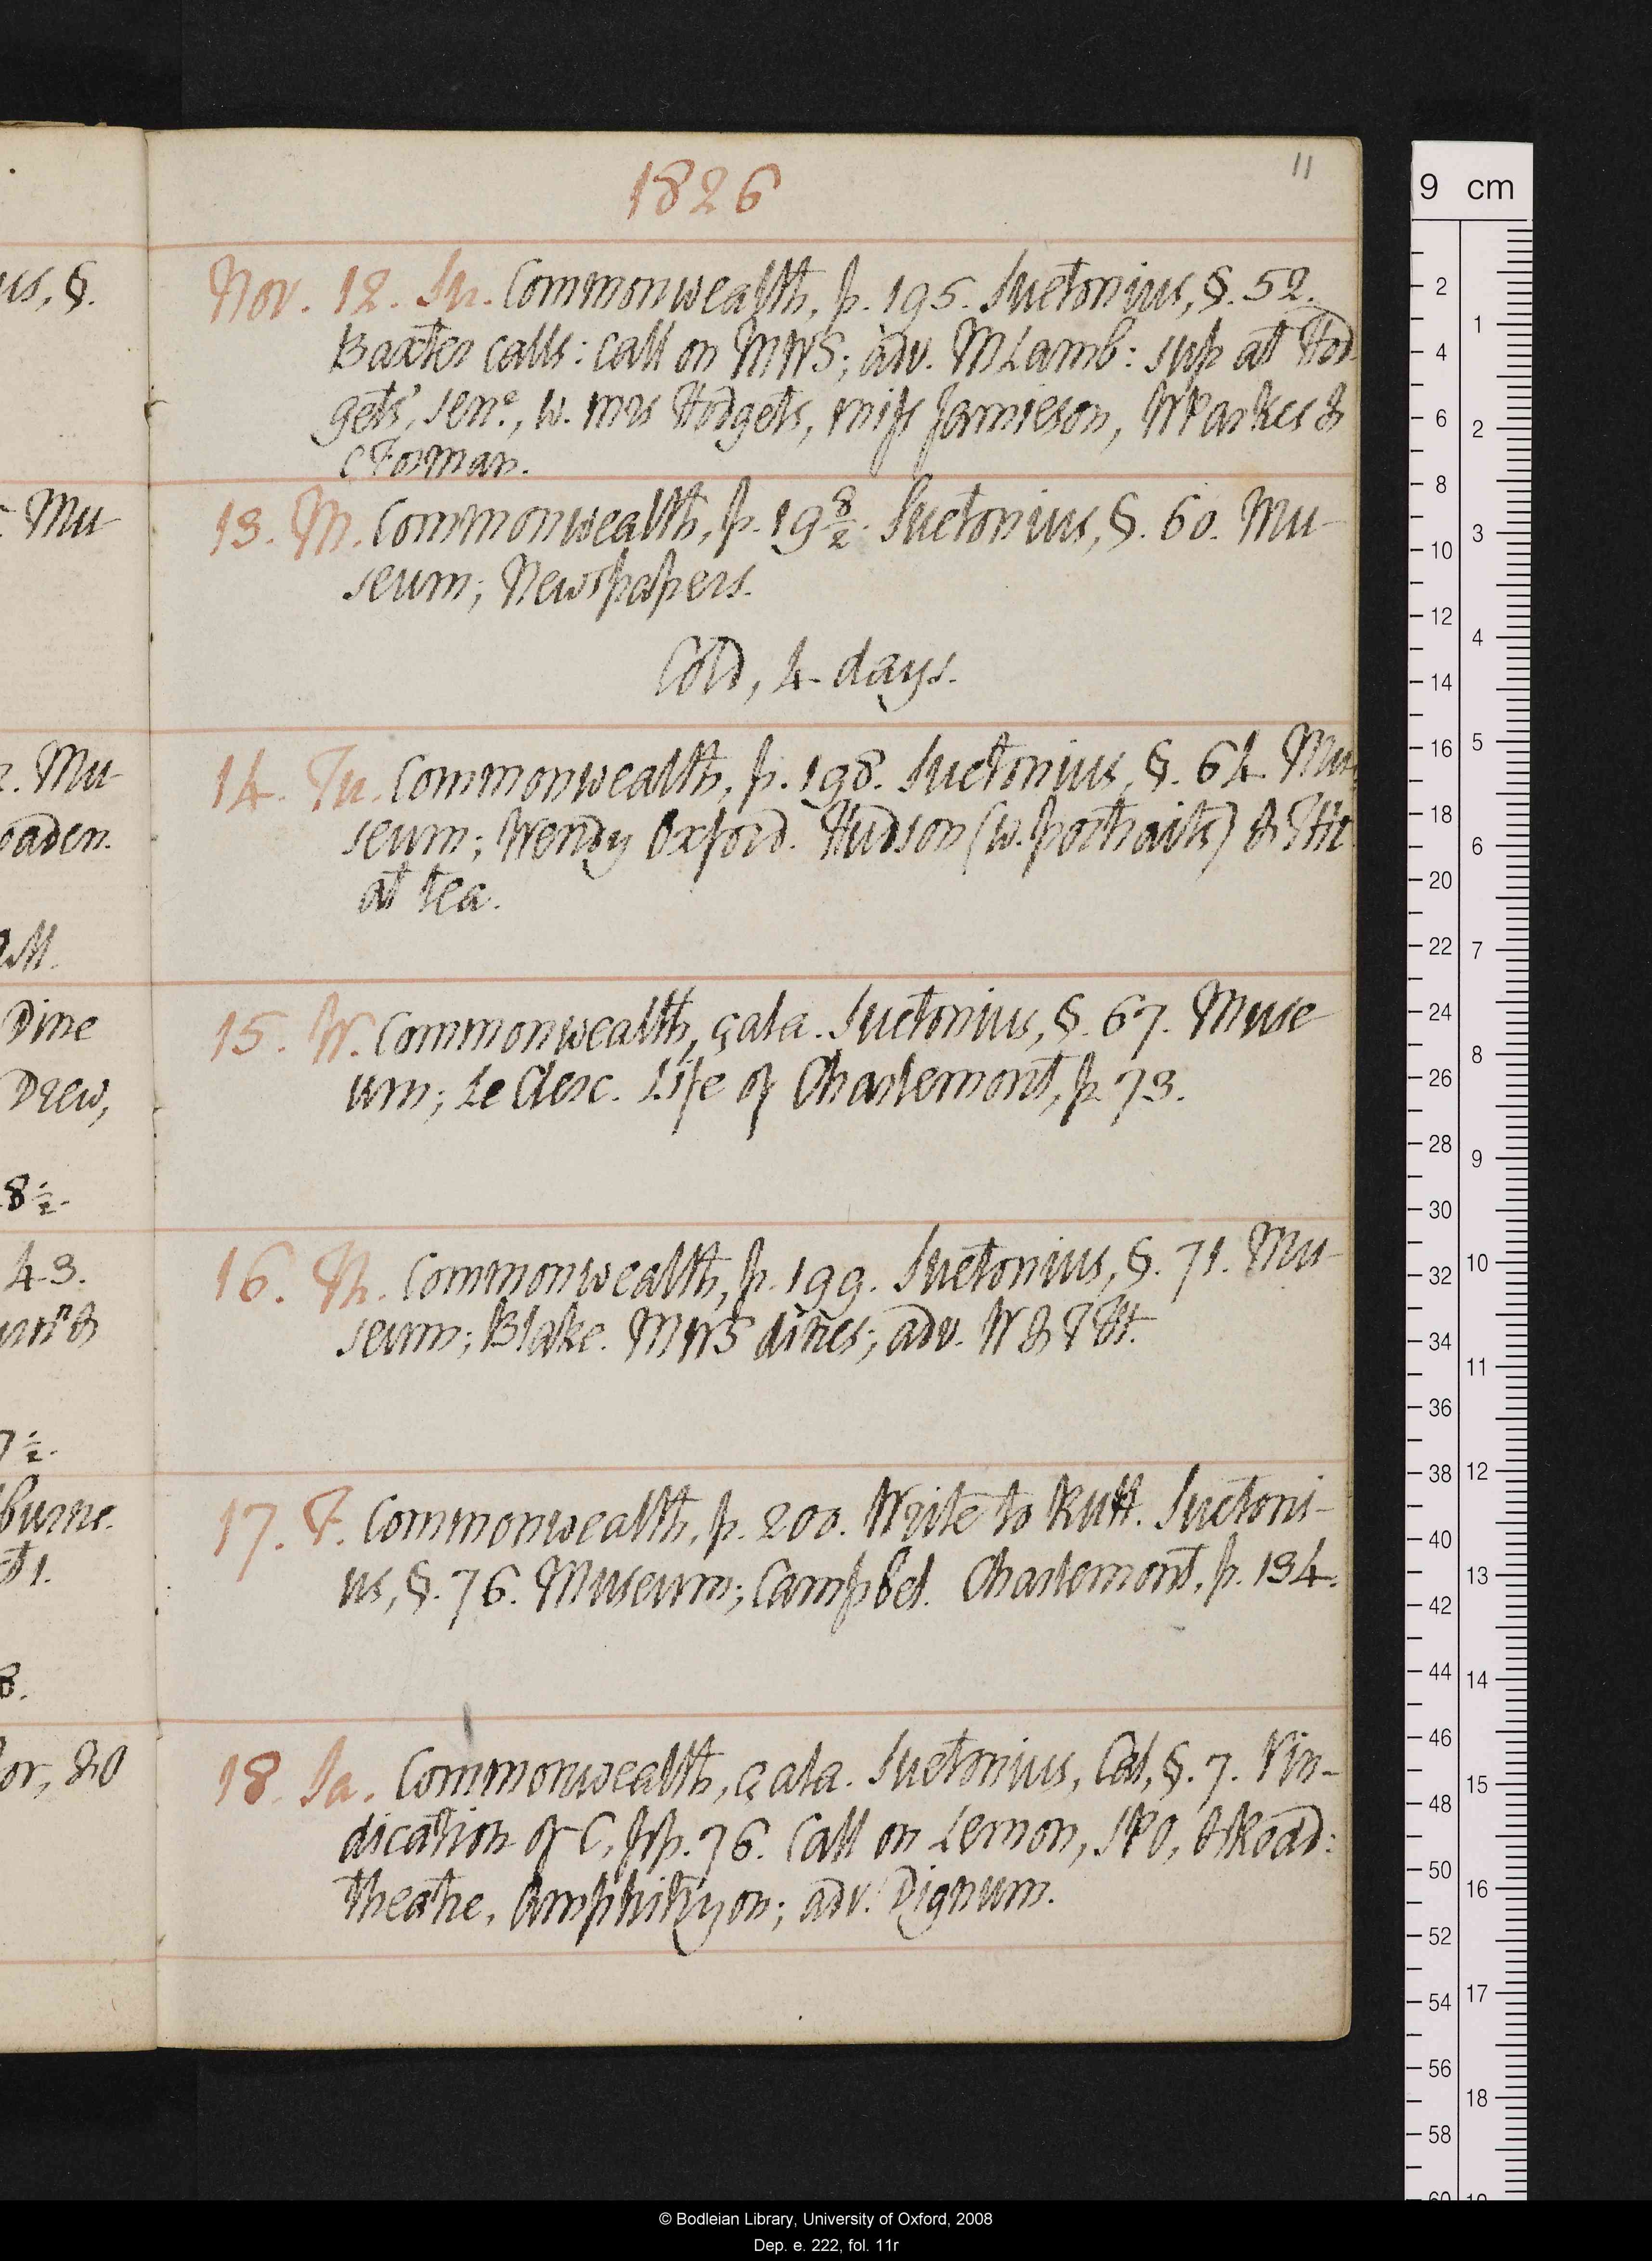 1826
11
Nov. 12. Su. Commonwealth, p. 195. Suetonius, §. 52.
Baxter calls: call on MWS; adv. M Lamb: sup at Hod
gets', senr., w. mrs Hodgets, miss Jamieson, W Parkes &
C Forman.
13. M. Commonwealth, p. 19 8/2. Suetonius, §. 60. Mu-
seum; Newspapers.
Cold, 4 days.
14. Tu. Commonwealth, p. 198. Suetonius, §. 64. Mu-
seum; Wendy Oxford. Hudson (w. portraits) & THt
at tea.
15. W. Commonwealth, çala. Suetonius, §. 67. Muse
um; Le Clerc. Life of Charlemont, p. 73.
16. Th. Commonwealth, p. 199. Suetonius, §. 71. Mu-
seum; Blake. MWS dines; adv. W & THt.
17. F. Commonwealth, p. 200. Write to Rutt. Suetoni-
us, §. 76. Museum; Campbel. Charlemont, p. 134.
18. Sa. Commonwealth, çala. Suetonius, Cal, §. 7. Vin-
dication of C, pp. 76. Call on Lemon, SPO, & Road:
theatre, Amphitryon; adv. Dignum.
us, §.
Mu-
Mu-
oaden.
Dine
Drew,
8½.
43.
7½.
burne.
or, & O
9 cm
2 4 6 8 10 12 14 16 18 20 22 24 26 28 30 32 34 36 38 40 42 44 46 48 50 52 54 56 58 60
1 2 3 4 5 6 7 8 9 10 11 12 13 14 15 16 17 18 19
© Bodleian Library, University of Oxford, 2008
Dep. e. 222, fol. 11r